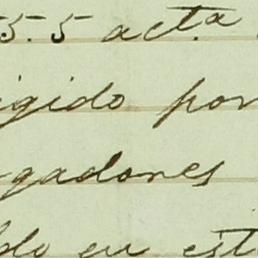 5.5 acta
igido por
gadores
do en est